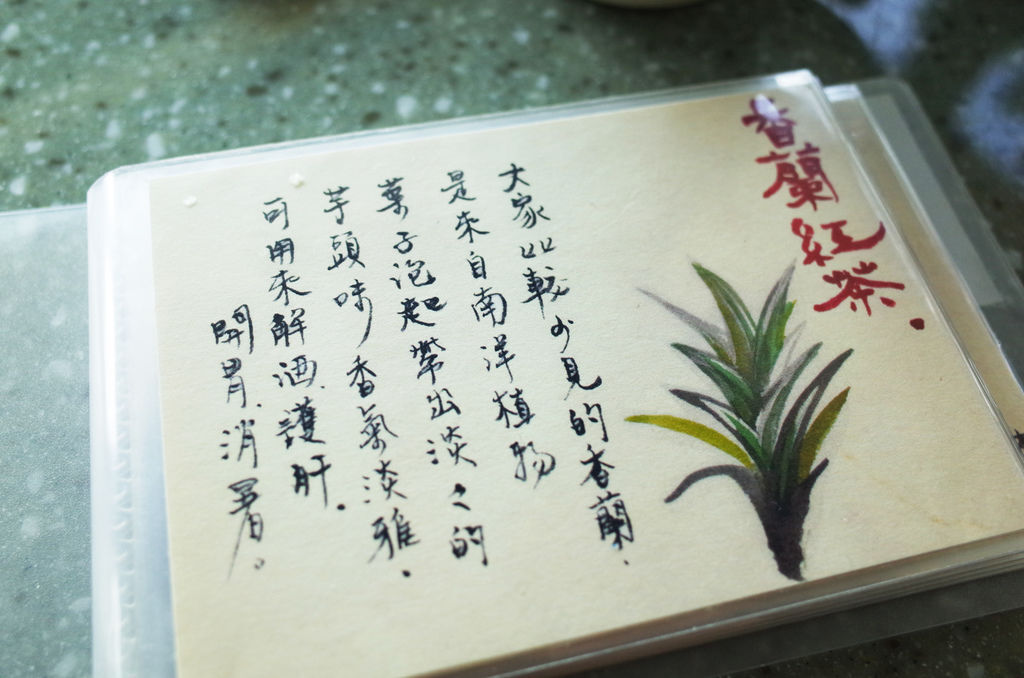 香蘭紅茶.
大家比較少見的香蘭.
是來自南洋植物
葉子泡起帶出淡々的
芋頭味香氣淡雅.
可用來解酒、護肝.
開胃、消暑。